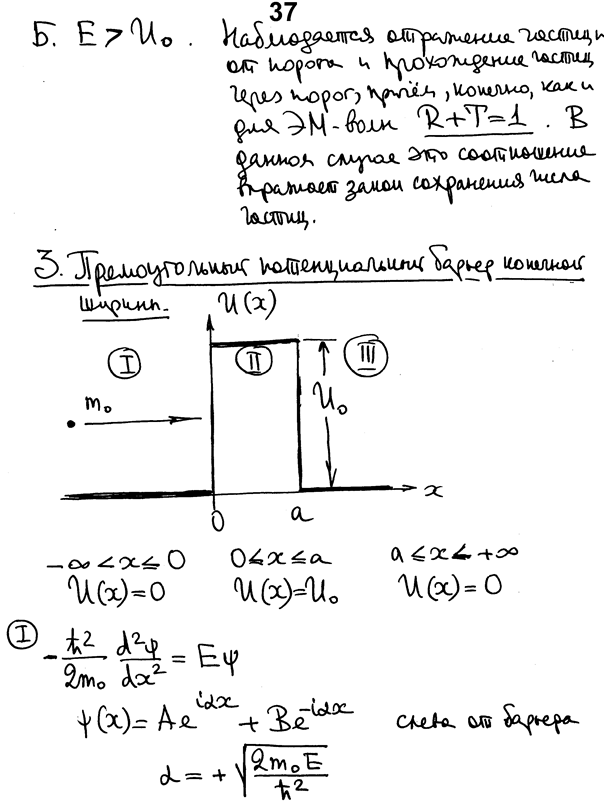 37
Б. E > U₀. Наблюдается отражение частиц
от порога и прохождение частиц
через порог, причём, конечно, как и
для ЭМ-волн R+T=1. В
данном случае это соотношение
выражает закон сохранения числа
частиц.
3. Прямоугольный потенциальный барьер конечной
ширины.
U(x)
I II III
m₀ U₀
0 a x
-∞ < x ≤ 0 0 ≤ x ≤ a a ≤ x < +∞
U(x)=0 U(x)=U₀ U(x)=0
I -ħ²/2m₀ d²ψ/dx² = Eψ
ψ(x) = Ae^{iαx} + Be^{-iαx} слева от барьера
α = +√(2m₀E/ħ²)